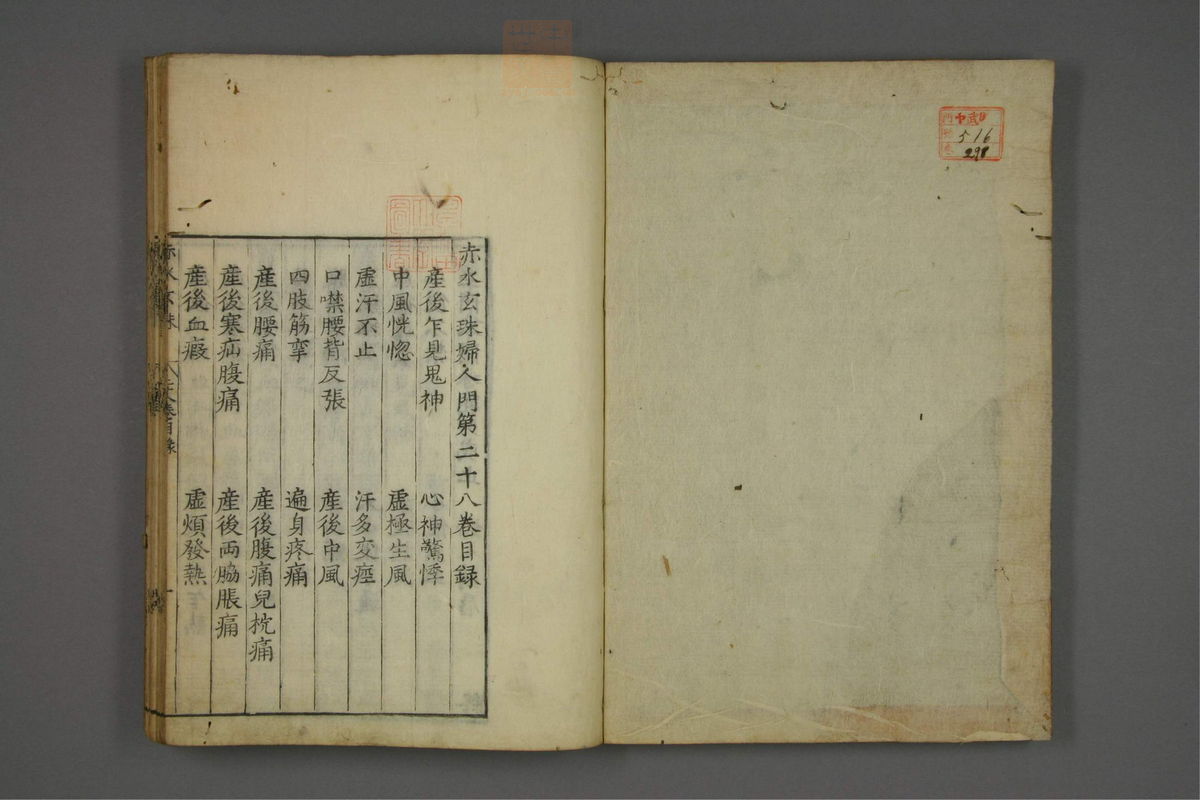 赤水玄珠婦人門第二十八卷目録
産後乍見鬼神　心神驚悸
中風恍惚　虚極生風
虚汗不止　汗多変痙
口噤腰背反張　産後中風
四肢筋挛　遍身疼痛
産後腰痛　産後腹痛兒枕痛
産後寒疝腹痛　産後両脇脹痛
産後血瘕　虚煩發熱
赤水玄珠
516
298